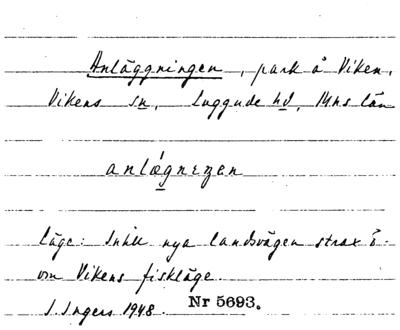 Anläggningen, park å Viken,
Vikens sn, Luggude hd, Mhs län
anlǽgnıŋen
läge: Intill nya landsvägen strax ö.
om Vikens fiskläge.
I. Ingers 1948. Nr 5693.